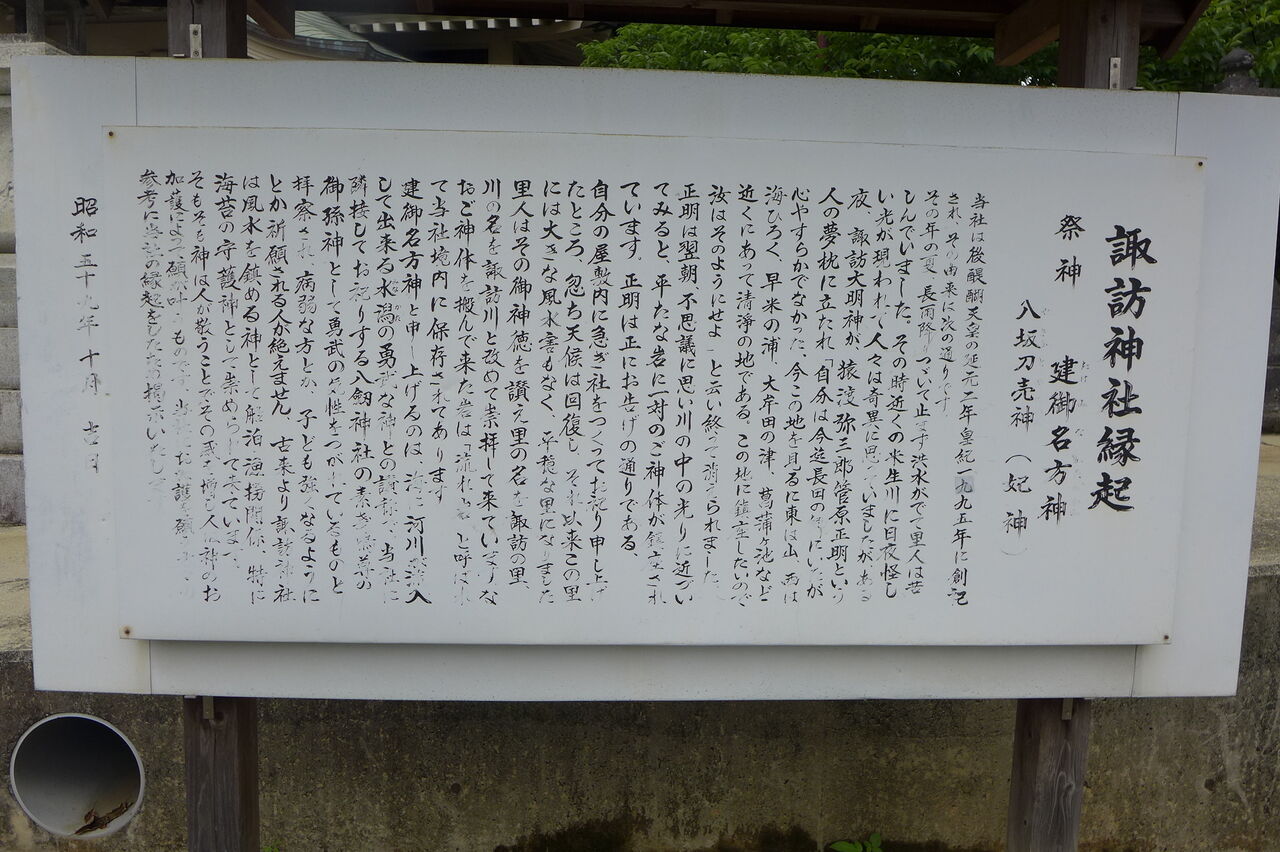 諏訪神社縁起
祭神 建御名方神
八坂刀売神(妃神)
当社は後醍醐天皇の延元二年皇紀一九九五年に創記
され、その由来に次の通りです
その年の夏、長雨降りつづいて止まず洪水がでて里人は苦
しんでいました。その時近くの米生川に日夜怪し
い光が現われて人々は奇異に思っていましたがある
夜、諏訪大明神が、猿渡弥三郎管原正明という
人の夢枕に立たれ「自分は今迄長田の
心やすらかでなかった、今この地を見るに東は山、西は
海ひろく、早米の浦、大牟田の津、菖蒲ヶ池など
近くにあって清浄の地である。この地に鎮座したいので
汝はそのようにせよ」と云い終って消えられました。
正明は翌朝、不思議に思い川の中の光りに近づい
てみると、平たな岩に一対のご神体が鎮座され
ています。正明は正にお告げの通りである、
自分の屋敷内に急ぎ社をつくってお祀り申し上げ
たところ、忽ち天候は回復し、それ以来この里
には大きな風水害もなく、平穏な里になりました
里人はその御神徳を讃え里の名を諏訪の里、
川の名を諏訪川と改めて崇拝して来ています、な
おご神体を搬んで来た岩は「流れ と呼ばれ
て当社境内に保存されてあります
建御名方神と申し上げるのは、 河川 入
して出来る水潟の勇武な神との 当社に
隣接してお祀りする八剱神社の素
御孫神として勇武の 性をつがれているものと
拝察され、病弱な方とか、子ども強くなるように
とか祈願される人が絶えません。古来より諏訪神社
は風水を鎮める神として船泊、漁撈関係、特に
海苔の守護神として崇められて来ています、
そもそも神は人が敬うことでその 増し人は神のお
加護によって願が叶 もの
参考に当社の縁起をし
昭和五十九年十月吉日